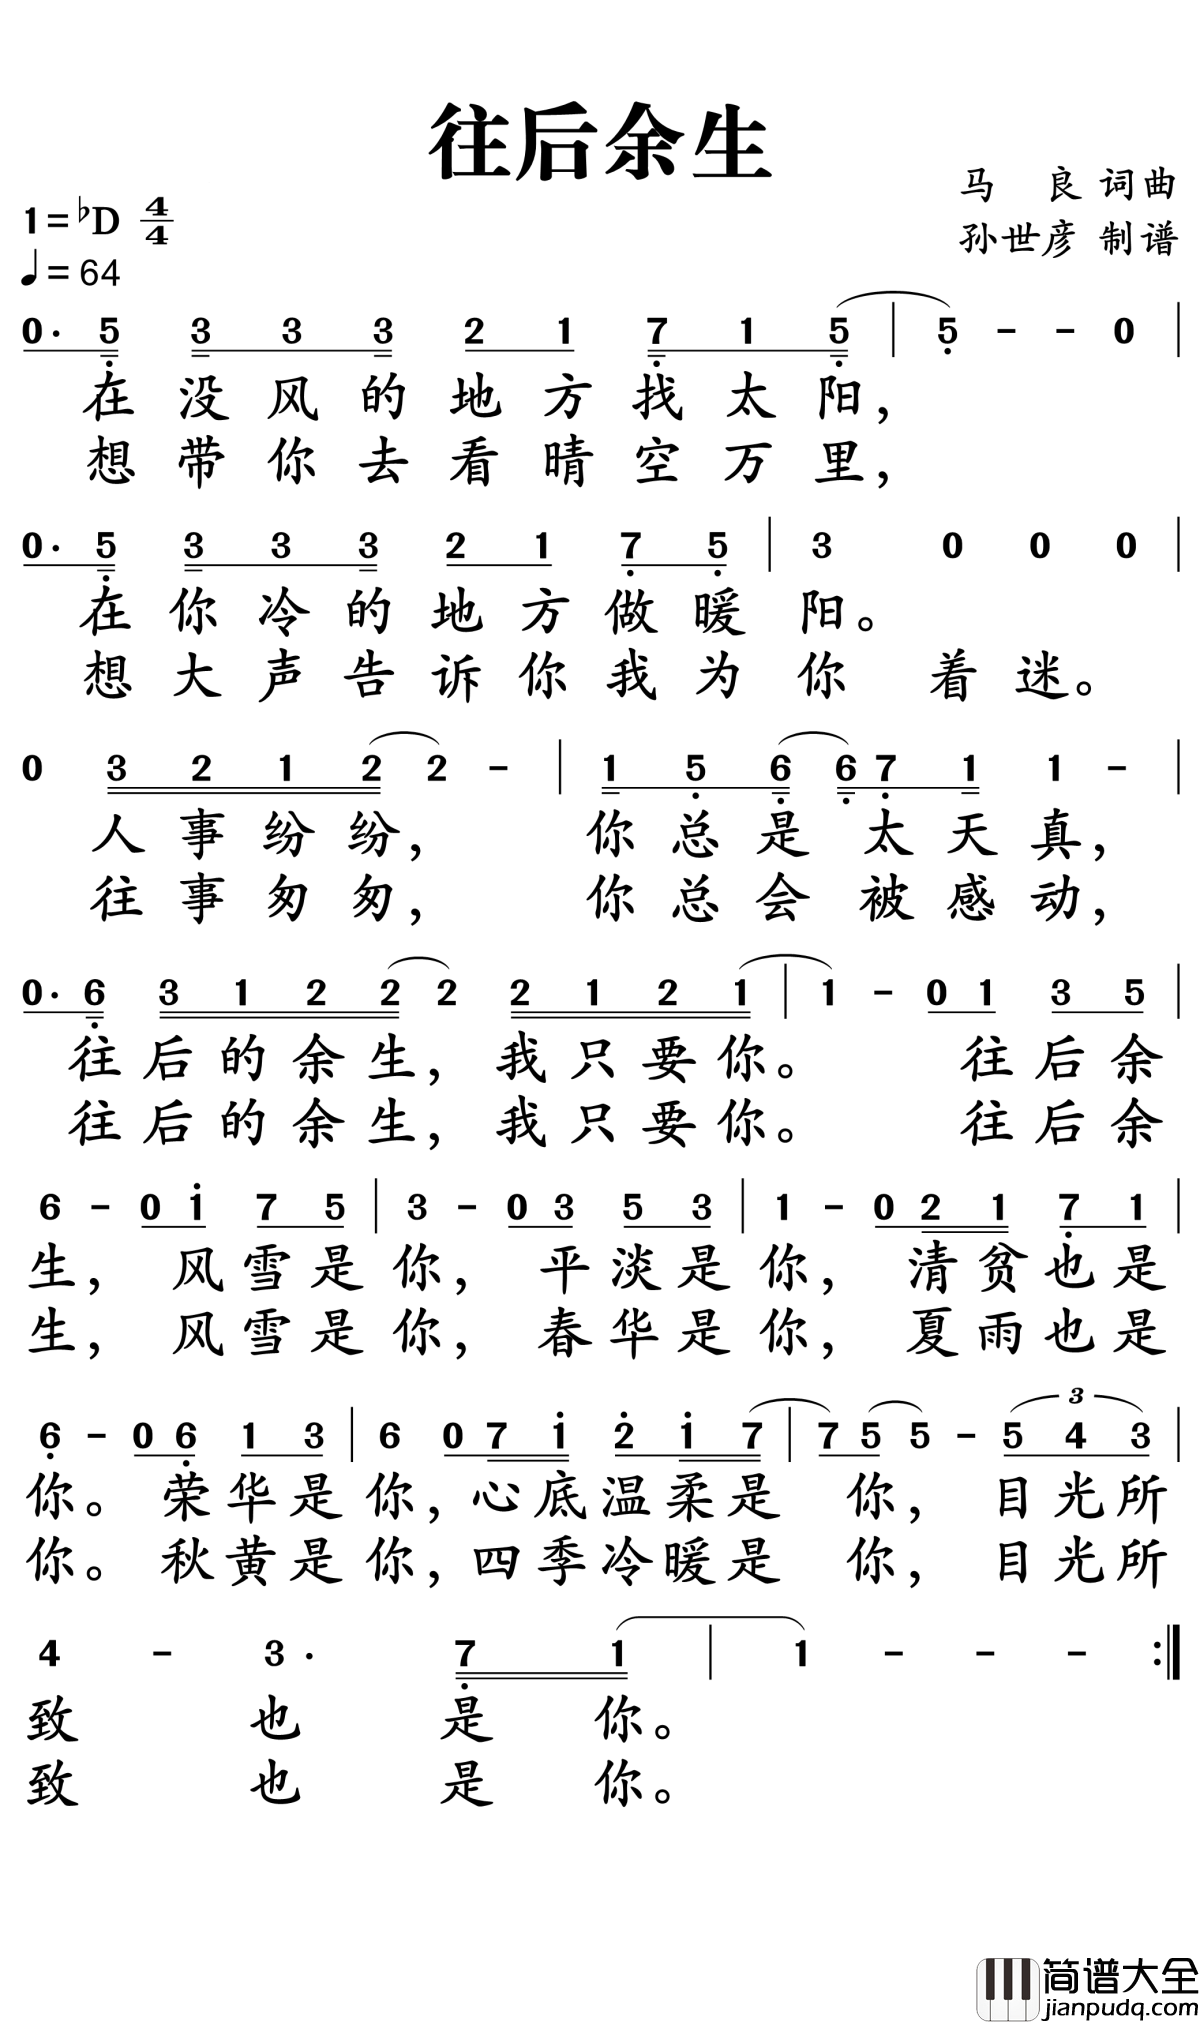 往后余生
马 良 词曲
1=♭D 4/4
孙世彦 制谱
♩=64
0. 5 3 3 3 2 1 7 1 5 | 5 - - 0 |
在没风的地方找太阳，
想带你去看晴空万里，
0. 5 3 3 3 2 1 7 5 | 3 0 0 0 |
在你冷的地方做暖阳。
想大声告诉你我为你着迷。
0 3 2 1 2 2 - | 1 5 6 6 7 1 1 - |
人事纷纷，你总是太天真，
往事匆匆，你总会被感动，
0. 6 3 1 2 2 2 2 1 2 1 | 1 - 0 1 3 5 |
往后的余生，我只要你。往后余
往后的余生，我只要你。往后余
6 - 0 1 7 5 | 3 - 0 3 5 3 | 1 - 0 2 1 7 1 |
生，风雪是你，平淡是你，清贫也是
生，风雪是你，春华是你，夏雨也是
3
6 - 0 6 1 3 | 6 0 7 1 2 1 7 | 7 5 5 - 5 4 3 |
你。荣华是你，心底温柔是你，目光所
你。秋黄是你，四季冷暖是你，目光所
4 - 3. 7 1 | 1 - - - :|
致也是你。
致也是你。
简谱大全
jianpudq.com